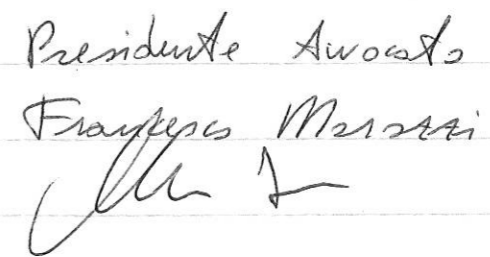 Presidente Avvocato
Francesco Marazzi